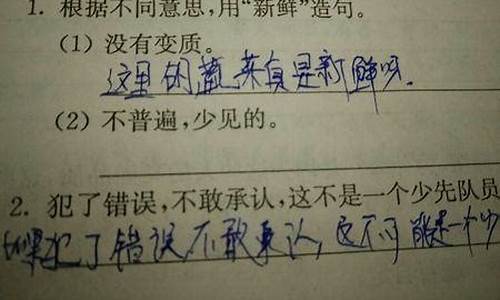 1. 根据不同意思,用“新鲜”造句。
(1)没有变质。
这里的蔬菜真是新鲜呀.
(2)不普遍,少见的。
2. 犯了错误,不敢承认,这不是一个少先队员
犯了错误,不敢承认,这不可能是一个少